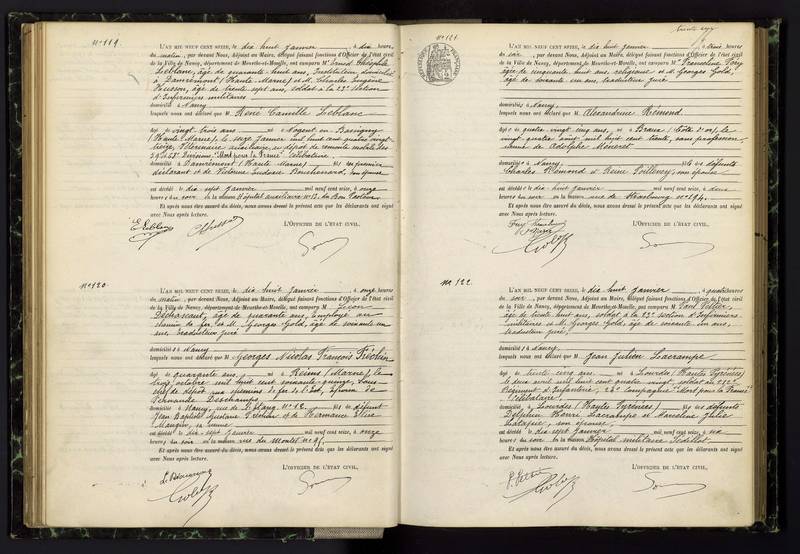 N° 119.
L'AN MIL NEUF CENT SEIZE, le dix huit Janvier à dix heures
du matin, par devant Nous, Adjoint au Maire, délégué faisant fonctions d'Officier de l'état civil
de la Ville de Nancy, département de Meurthe-et-Moselle, ont comparu M. Ernest Théophile
Leblanc, âgé de quarante huit ans, Instituteur, domicilié
à Damrémont (Haute Marne) et M. Charles Eugène
Husson, âgé de trente sept ans, soldat à la 23e section
d'Infirmiers militaires
domicilié à Nancy
lesquels nous ont déclaré que M. René Camille Leblanc
âgé de vingt trois ans né à Nogent en Bassigny
(Haute Marne) le seize Janvier mil huit cent quatre vingt
treize, Vétérinaire auxiliaire, au dépôt de remonte mobile des
"Mort pour la France" Célibataire
domicilié à Damrémont (Haute Marne) fils du premier
déclarant et de son épouse
est décédé le dix sept Janvier mil neuf cent seize, à onze
heures du soir en la maison Hôpital auxiliaire N° 12. du Bon Pasteur
Et après nous être assuré du décès, nous avons dressé le présent acte que les déclarants ont signé
avec Nous après lecture.
L'OFFICIER DE L'ÉTAT CIVIL,
E. Leblanc
N° 120.
L'AN MIL NEUF CENT SEIZE, le dix huit Janvier à onze heures
du matin, par devant Nous, Adjoint au Maire, délégué faisant fonctions d'Officier de l'état civil
de la Ville de Nancy, département de Meurthe-et-Moselle, ont comparu M. Léon
âgé de quarante ans, employé au
chemin de fer, et M. Georges Gold, âgé de soixante un
ans, traducteur juré,
domiciliés à Nancy
lesquels nous ont déclaré que M. Georges Nicolas François
âgé de quarante ans né à Reims (Marne) le
octobre mil huit cent soixante quinze, Sous
chef de dépôt aux chemins de fer de l'Est, époux de
Fernande Deschamps
domicilié à Nancy, rue de N° 12 fils de défunt
Jean Baptiste et de Hermance Elise
Mangin, sa veuve
est décédé le dix sept Janvier mil neuf cent seize, à onze
heures du soir en la maison rue du Montet N° 91.
Et après nous être assuré du décès, nous avons dressé le présent acte que les déclarants ont signé
avec Nous après lecture.
L'OFFICIER DE L'ÉTAT CIVIL,
N° 121.
L'AN MIL NEUF CENT SEIZE, le dix huit Janvier à trois heures
du soir, par devant Nous, Adjoint au Maire, délégué faisant fonctions d'Officier de l'état civil
de la Ville de Nancy, département de Meurthe-et-Moselle, ont comparu Me Franceline
âgée de cinquante huit ans, religieuse et M. Georges Gold,
âgé de soixante un ans, traducteur juré,
domiciliés à Nancy,
lesquels nous ont déclaré que M. Alexandrine Rémond
âgée de quatre vingt cinq ans, née à Braux (Côte d'or), le
mil huit cent trente, sans profession
veuve de Adolphe
domiciliée à Nancy, fille de défunts
Charles Rémond et Reine son épouse
est décédée le dix huit Janvier mil neuf cent seize, à deux
heures du soir en la maison rue de Strasbourg N° 194.
Et après nous être assuré du décès, nous avons dressé le présent acte que les déclarants ont signé
avec Nous après lecture.
L'OFFICIER DE L'ÉTAT CIVIL,
N° 122.
L'AN MIL NEUF CENT SEIZE, le dix huit Janvier à quatre heures
du soir, par devant Nous, Adjoint au Maire, délégué faisant fonctions d'Officier de l'état civil
de la Ville de Nancy, département de Meurthe-et-Moselle, ont comparu M. Paul
âgé de trente huit ans, soldat à la 23e section d'Infirmiers
militaires et M. Georges Gold, âgé de soixante un ans,
traducteur juré,
domiciliés à Nancy
lesquels nous ont déclaré que M. Jean Julien Lacrampe
âgé de trente cinq ans né à Lourdes (Hautes Pyrénées)
le deux avril mil huit cent quatre vingt, soldat au
Régiment d'Infanterie, 24e Compagnie "Mort pour la France"
Célibataire
domicilié à Lourdes (Hautes Pyrénées) fils de défunts
Lacrampe et Marceline
son épouse
est décédé le dix sept Janvier mil neuf cent seize, à six
heures du soir en la maison Hôpital militaire Sédillot
Et après nous être assuré du décès, nous avons dressé le présent acte que les déclarants ont signé
avec Nous après lecture.
L'OFFICIER DE L'ÉTAT CIVIL,